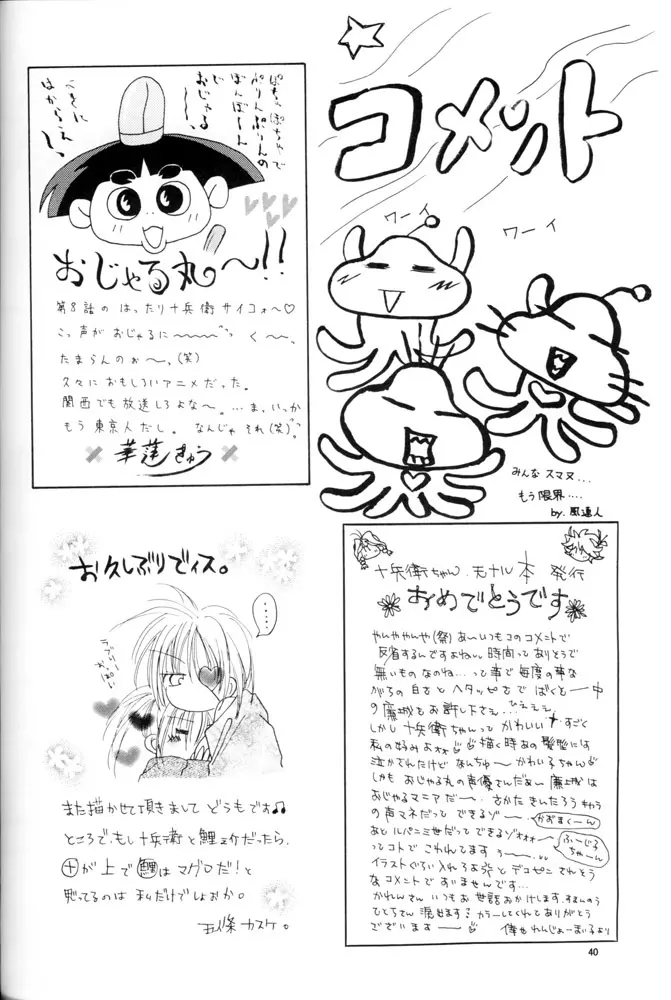 コメント
ワーイ
ワーイ
みんなスマヌ...
もう限界....
by.風道人
ぽちゃぽちゃで
ぷりんぷりんの
ぼんぼーん
じゃ、
おじゃる
うきに
はからえ〜
おじゃる丸〜!!
第8話の はったり十兵衛 サイコォ〜♡
こっ声が おじゃるに〜〜〜 く〜〜、
たまらんのぉ〜〜、(笑)
久々に おもしろいアニメだった。
関西でも 放送しろよな〜。...ま、いっか
もう 東京人だし。 なんじゃ それ(笑)
華蓮きゅう
お久しぶりでイス。
....
ラブリー
っぽい
また描かせて頂きまして どうもです♫
ところで、もし十兵衛と鯉ノ介だったら、
十が上で鯉はマグロだ!と
思ってるのは 私だけでしょおか。
五條 カスケ。
十兵衛ちゃん.モナル本 発行
おめでとうです
やんややんや(祭) あ〜いつもコのコメントで
反省するんですよねい。時間ってありそうで
無いものなのね...って事で毎度の事な
がらの 白さと ヘタッピさで ばくと一中
の廉城をお許し下さえ...ひぇぇぇ
しかし 十兵衛ちゃんって かわいい すごく
私の好みよ 描く時あの髪型には
泣かされたけど なんちゅ〜 かわい子ちゃん
しかも おじゃる丸の声優さんだぁ 廉城は
おじゃるマニアだ〜. さかた きんたろう
の声マネだって できるゾ〜
かおまく〜ん
あと ルパン三世だって できるゾォォォ〜
ふーじこ
ちゃーん
ってコトで こわれてます う〜〜.
イラストぐらい入れろよ と デコピン されそう
な コメントで すいませんです...
かれんさん いつも お世話おかけします.
ひとちさん 混ぜます? カラーしてくれとありがとう
ございます〜〜
40